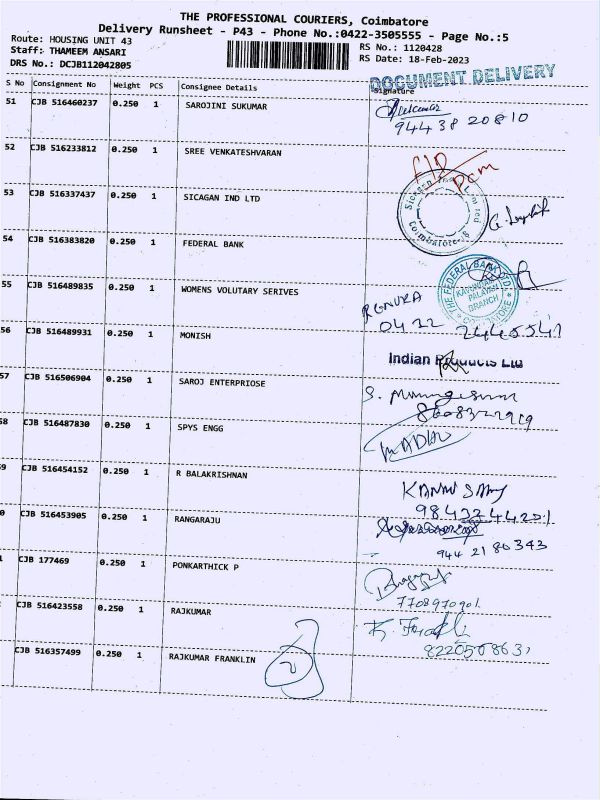 THE PROFESSIONAL COURIERS, Coimbatore
Delivery Runsheet - P43 - Phone No.:0422-3505555 - Page No.:5
Route: HOUSING UNIT 43
RS No.: 1120428
Staff: THAMEEM ANSARI
RS Date: 18-Feb-2023
DRS No.: DCJB112042805
DOCUMENT DELIVERY
S No Consignment No Weight PCS Consignee Details Signature
51 CJB 516460237 0.250 1 SAROJINI SUKUMAR
94438 20810
52 CJB 516233812 0.250 1 SREE VENKATESHVARAN
53 CJB 516337437 0.250 1 SICAGAN IND LTD
Coimbatore
54 CJB 516383820 0.250 1 FEDERAL BANK
THE FEDERAL BANK LTD.
BRANCH
55 CJB 516489835 0.250 1 WOMENS VOLUTARY SERIVES
RENUKA
0422 2445541
56 CJB 516489931 0.250 1 MONISH
Indian Products Ltd
57 CJB 516506904 0.250 1 SAROJ ENTERPRIOSE
58 CJB 516487830 0.250 1 SPYS ENGG
MADHU
9 CJB 516454152 0.250 1 R BALAKRISHNAN
KANNU SAMY
9843244201
0 CJB 516453905 0.250 1 RANGARAJU
944 2180343
CJB 177469 0.250 1 PONKARTHICK P
7708970901
CJB 516423558 0.250 1 RAJKUMAR
CJB 516357499 0.250 1 RAJKUMAR FRANKLIN